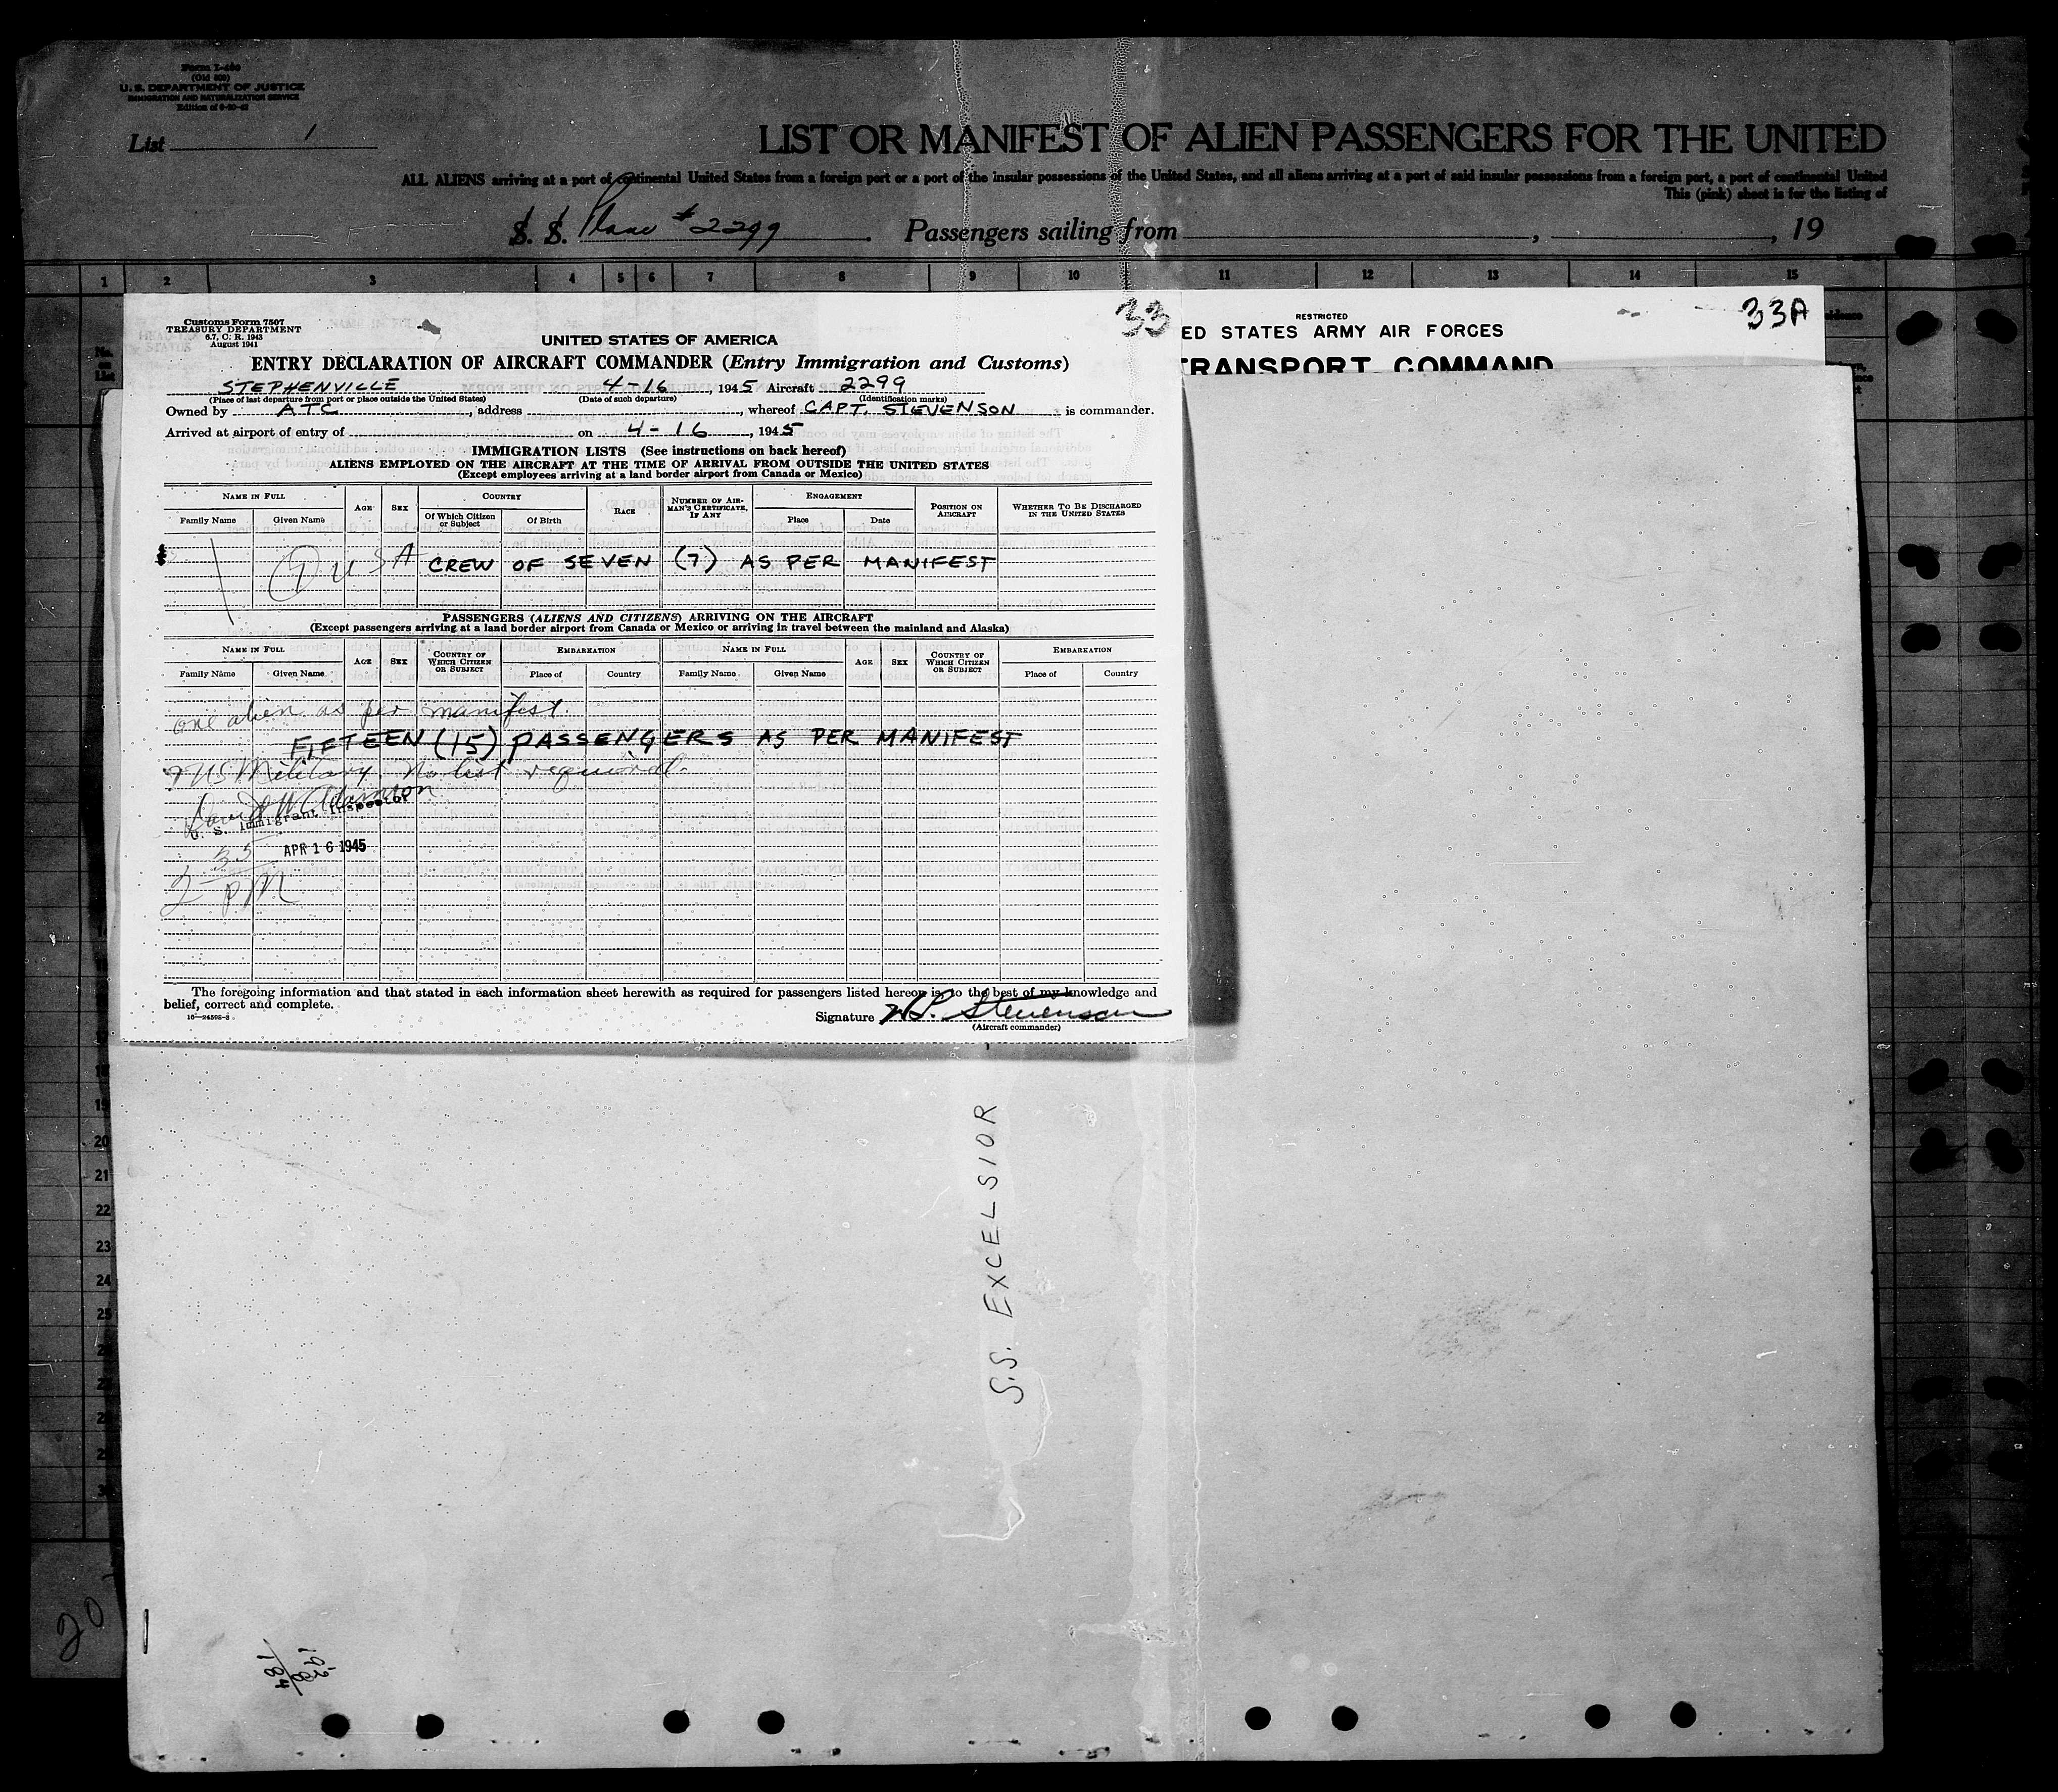 Form I-400
(Old 500)
U. S. DEPARTMENT OF JUSTICE
IMMIGRATION AND NATURALIZATION SERVICE
List 1
LIST OR MANIFEST OF ALIEN PASSENGERS FOR THE UNITED
ALL ALIENS arriving at a port of continental United States from a foreign port or a port of the insular possessions of the United States, and all aliens arriving at a port of said insular possessions from a foreign port, a port of continental United
This (pink) sheet is for the listing of
S. S. Plane # 2299 Passengers sailing from , , 19
1 2 3 4 5 6 7 8 9 10 11 12 13 14 15
No. on List
33
Customs Form 7507
TREASURY DEPARTMENT
6.7, C. R. 1943
August 1941
UNITED STATES OF AMERICA
ENTRY DECLARATION OF AIRCRAFT COMMANDER (Entry Immigration and Customs)
STEPHENVILLE 4-16, 1945 Aircraft 2299
(Place of last departure from port or place outside the United States) (Date of such departure) (Identification marks)
Owned by ATC, address , whereof CAPT. STEVENSON is commander.
Arrived at airport of entry of on 4-16, 1945
IMMIGRATION LISTS (See instructions on back hereof)
ALIENS EMPLOYED ON THE AIRCRAFT AT THE TIME OF ARRIVAL FROM OUTSIDE THE UNITED STATES
(Except employees arriving at a land border airport from Canada or Mexico)
NAME IN FULL AGE SEX COUNTRY RACE NUMBER OF AIRMAN'S CERTIFICATE, IF ANY ENGAGEMENT POSITION ON AIRCRAFT WHETHER TO BE DISCHARGED IN THE UNITED STATES
Family Name Given Name Of Which Citizen or Subject Of Birth Place Date
7 USA CREW OF SEVEN (7) AS PER MANIFEST
PASSENGERS (ALIENS AND CITIZENS) ARRIVING ON THE AIRCRAFT
(Except passengers arriving at a land border airport from Canada or Mexico or arriving in travel between the mainland and Alaska)
NAME IN FULL AGE SEX COUNTRY OF WHICH CITIZEN OR SUBJECT EMBARKATION NAME IN FULL AGE SEX COUNTRY OF WHICH CITIZEN OR SUBJECT EMBARKATION
Family Name Given Name Place of Country Family Name Given Name Place of Country
one alien as per manifest.
FIFTEEN (15) PASSENGERS AS PER MANIFEST
9 US Military. No list required.
David W. Adamson
U. S. Immigrant Inspector
APR 16 1945
2 35 PM
The foregoing information and that stated in each information sheet herewith as required for passengers listed hereon is, to the best of my knowledge and
belief, correct and complete.
16—24598-3
Signature Stevenson
(Aircraft commander)
RESTRICTED
33A
ED STATES ARMY AIR FORCES
TRANSPORT COMMAND
19
20
21
22
23
24
25
26
S.S. EXCELSIOR
20